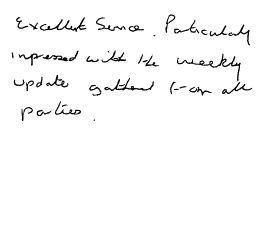 Excellent Service. Particularly
impressed with the weekly
update gathered from all
parties.